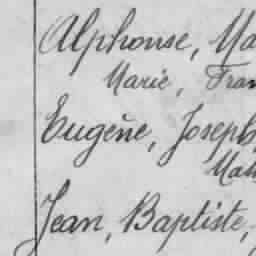 Alphonse, Ma
Marie, Fran
Eugène, Joseph,
Jean, Baptiste,